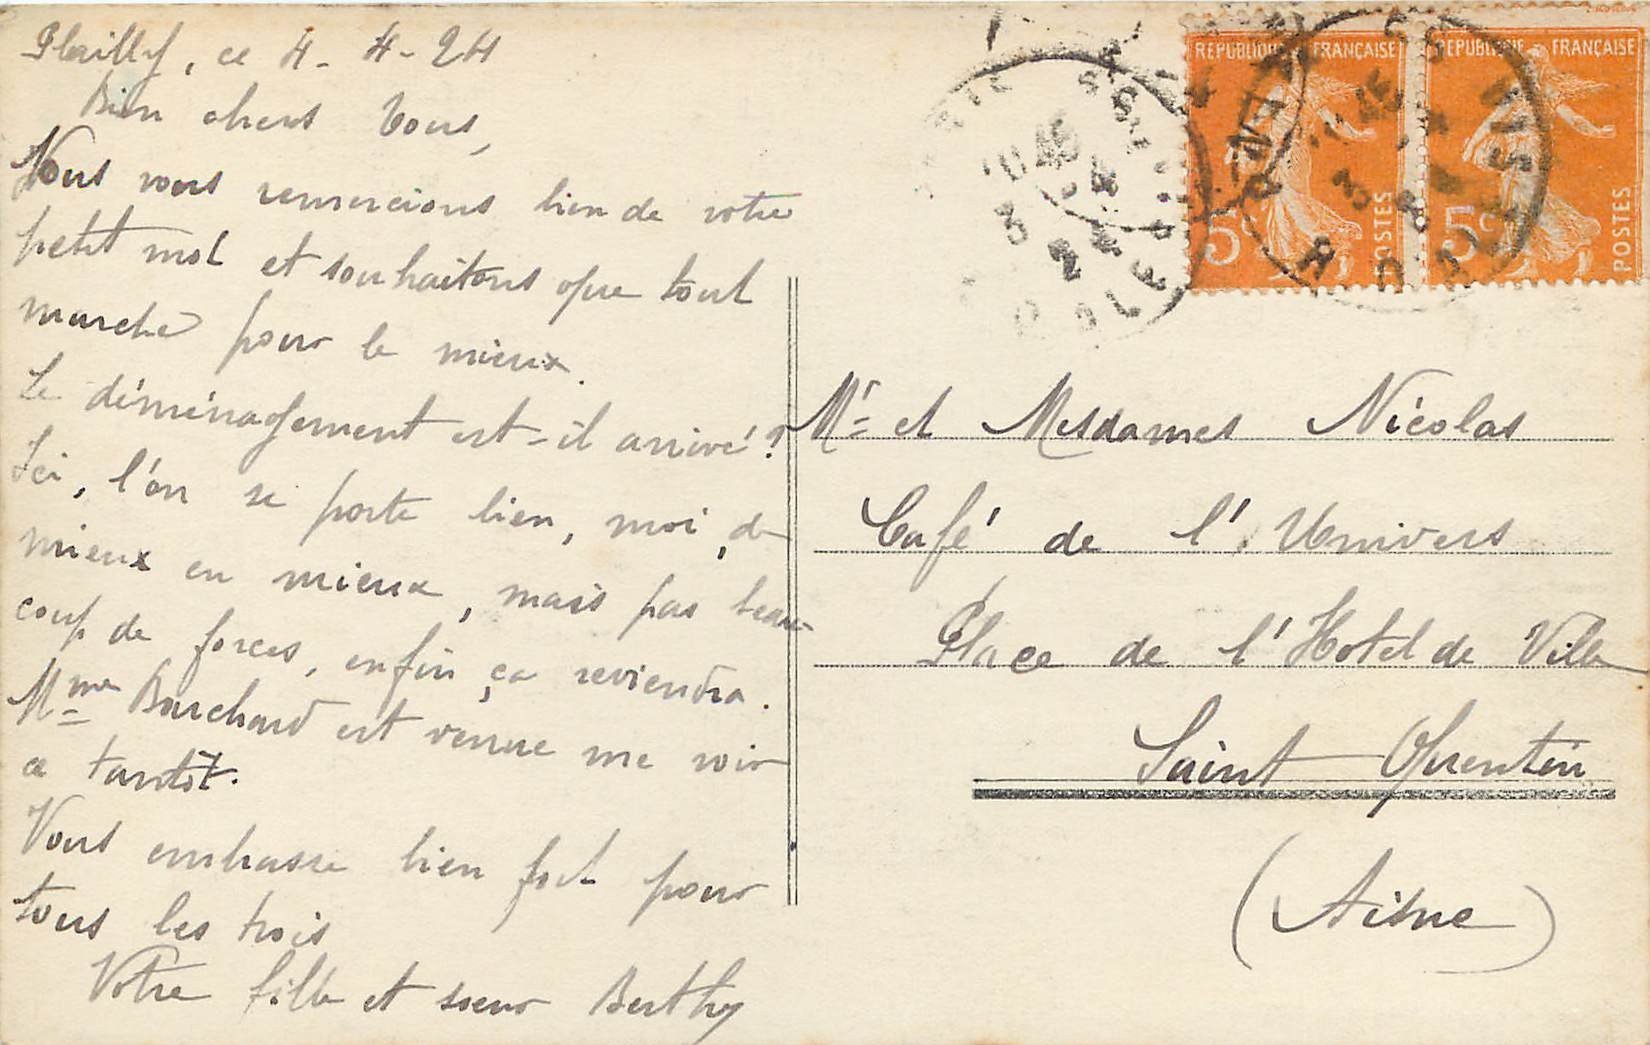 Plailly, ce 4-4-24
Bien chers Tous,
Nous vous remercions bien de votre
petit mot et souhaitons que tout
marche pour le mieux.
Le déménagement est-il arrivé?
Ici, l'on se porte bien, moi, de
mieux en mieux, mais pas beau-
coup de forces, enfin ça reviendra.
Mme Bouchard est venue me voir
a tantôt.
Vous embrasse bien fort pour
tous les trois
Votre fille et soeur Berthy
REPUBLIQUE FRANÇAISE
5c POSTES
REPUBLIQUE FRANÇAISE
5c POSTES
Mr et Mesdames Nicolas
Café de l'Univers
Place de l'Hotel de Ville
Saint Quentin
(Aisne)